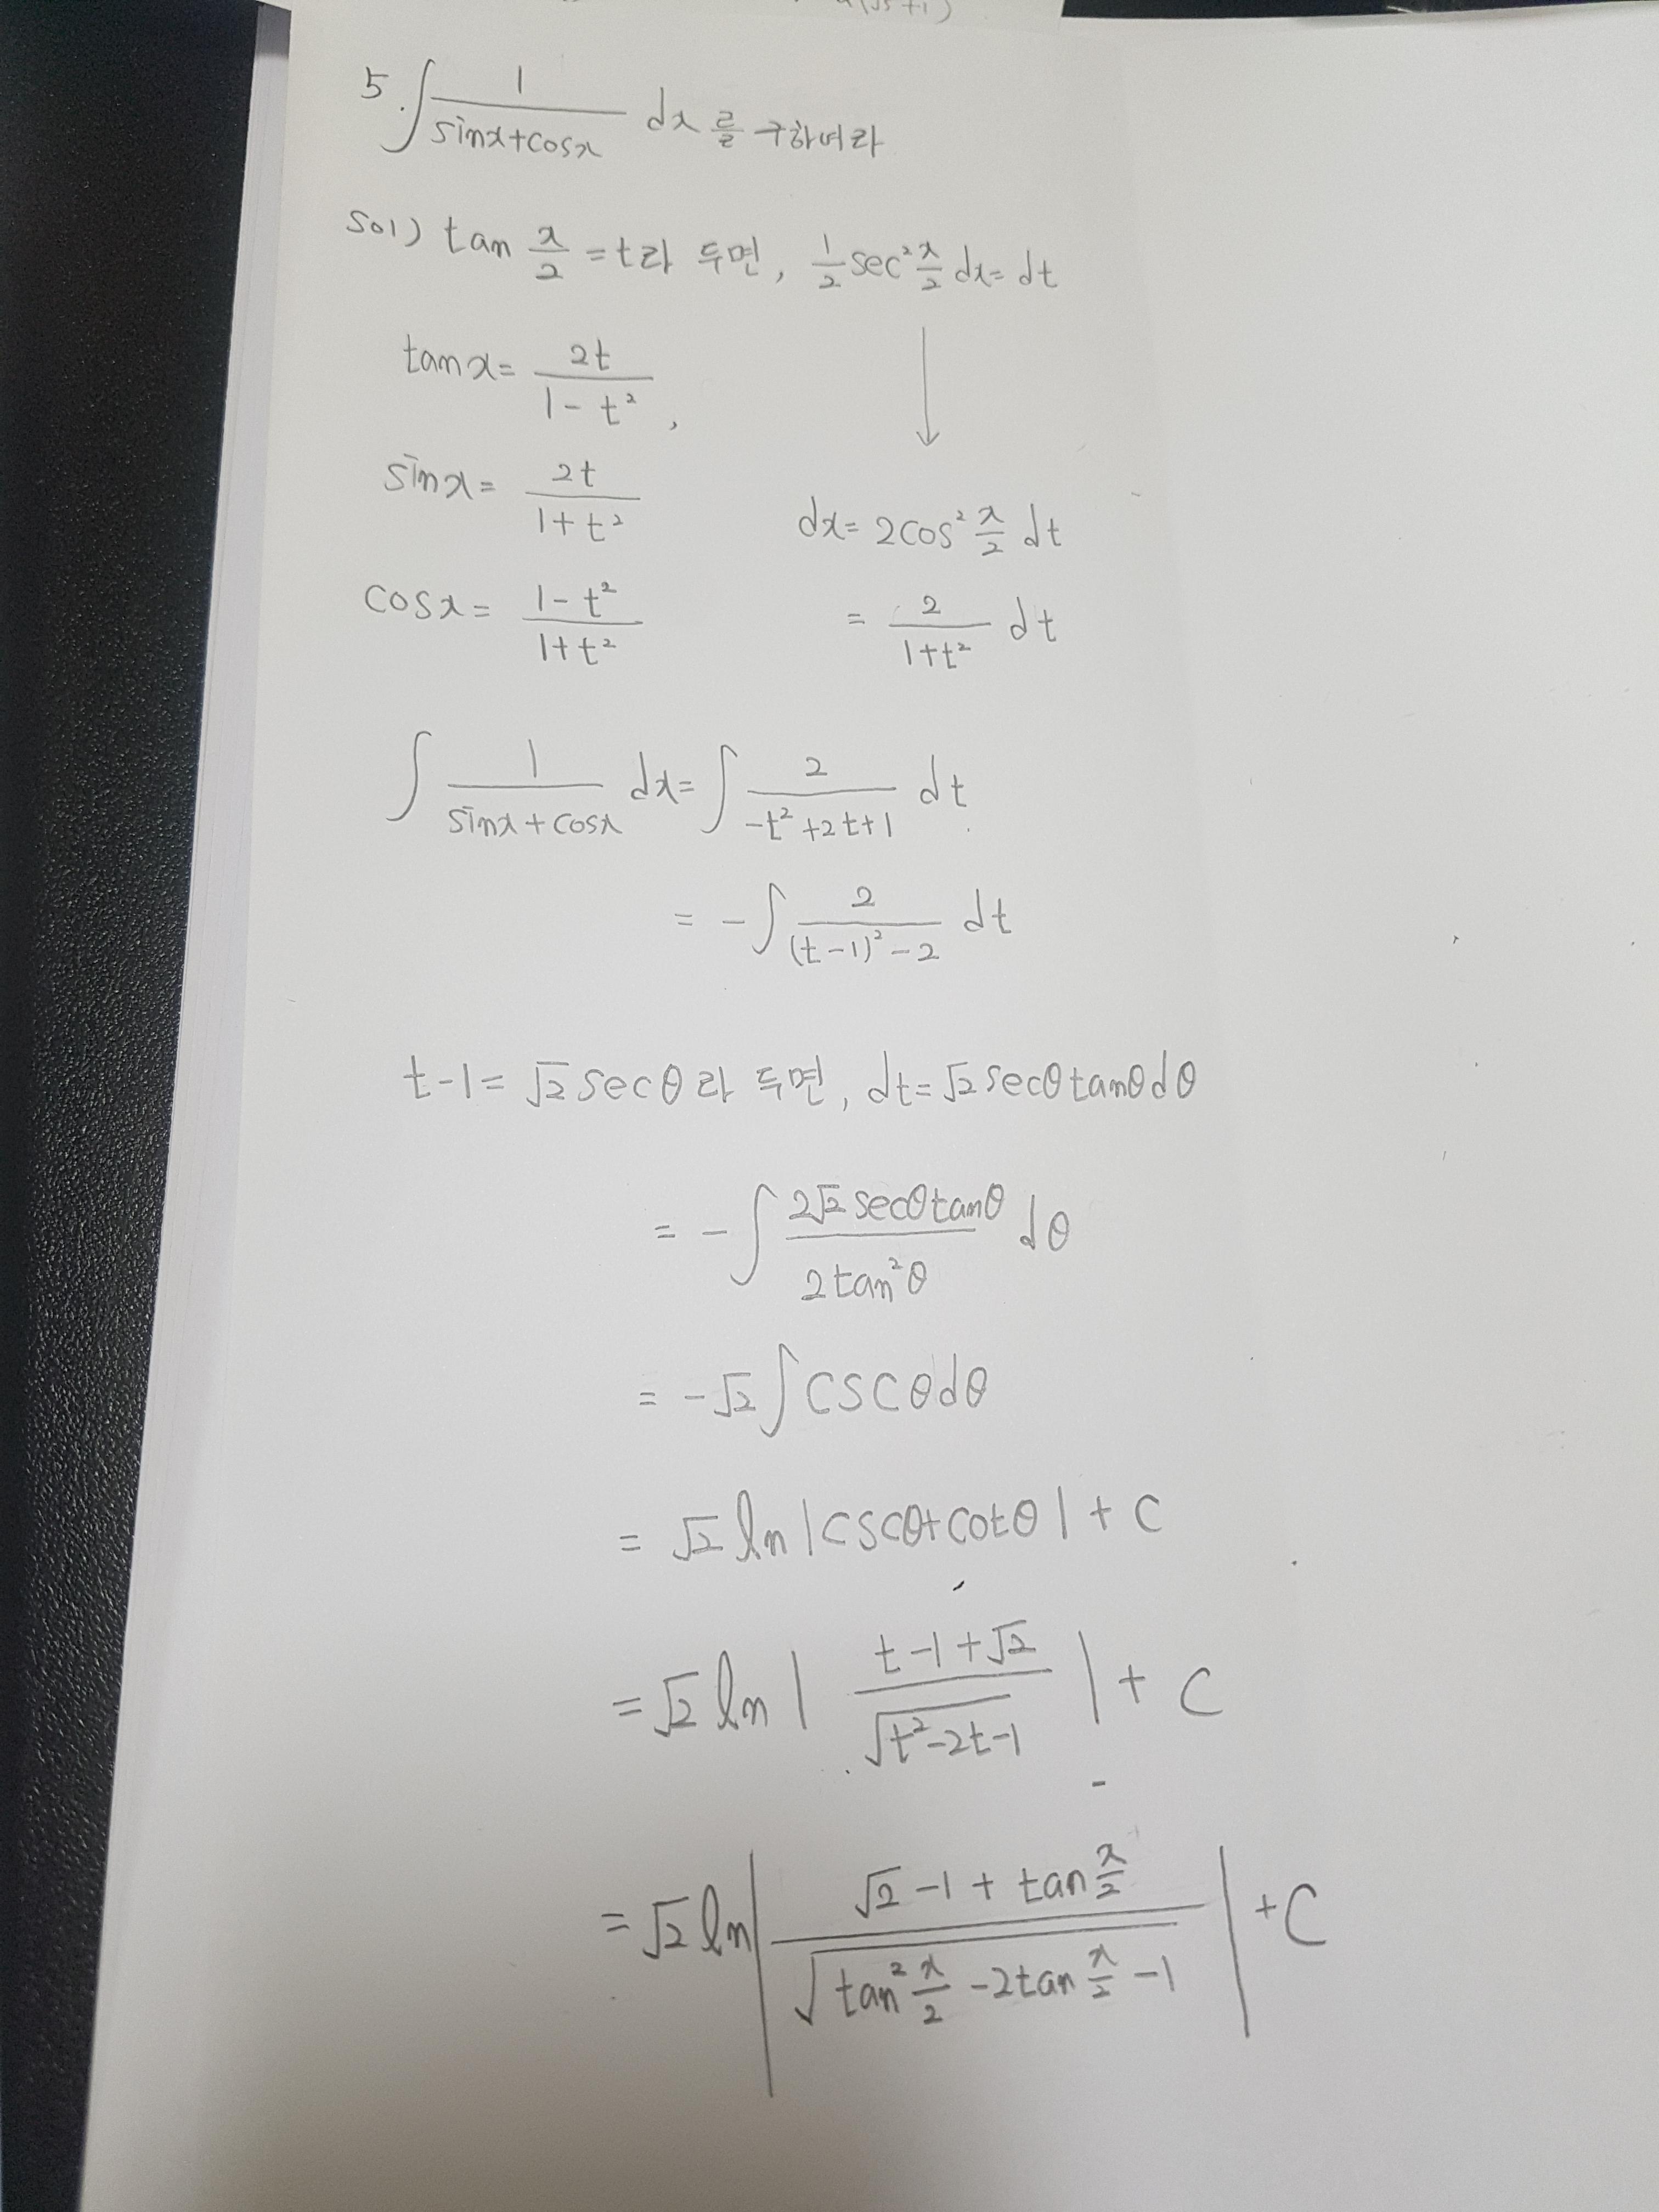 5. ∫ 1/(sinx+cosx) dx 를 구하여라
sol) tan x/2 = t라 두면, 1/2 sec² x/2 dx = dt
tanx = 2t/(1-t²),
sinx = 2t/(1+t²)
dx = 2cos² x/2 dt
cosx = (1-t²)/(1+t²)
= 2/(1+t²) dt
∫ 1/(sinx+cosx) dx = ∫ 2/(-t²+2t+1) dt
= -∫ 2/((t-1)²-2) dt
t-1 = √2 secθ라 두면, dt = √2 secθtanθdθ
= -∫ 2√2 secθtanθ/(2tan²θ) dθ
= -√2 ∫ cscθdθ
= √2 ln|cscθ+cotθ| + C
= √2 ln| (t-1+√2)/√(t²-2t-1) | + C
= √2 ln| (√2-1+tan x/2)/√(tan² x/2 - 2tan x/2 - 1) | + C